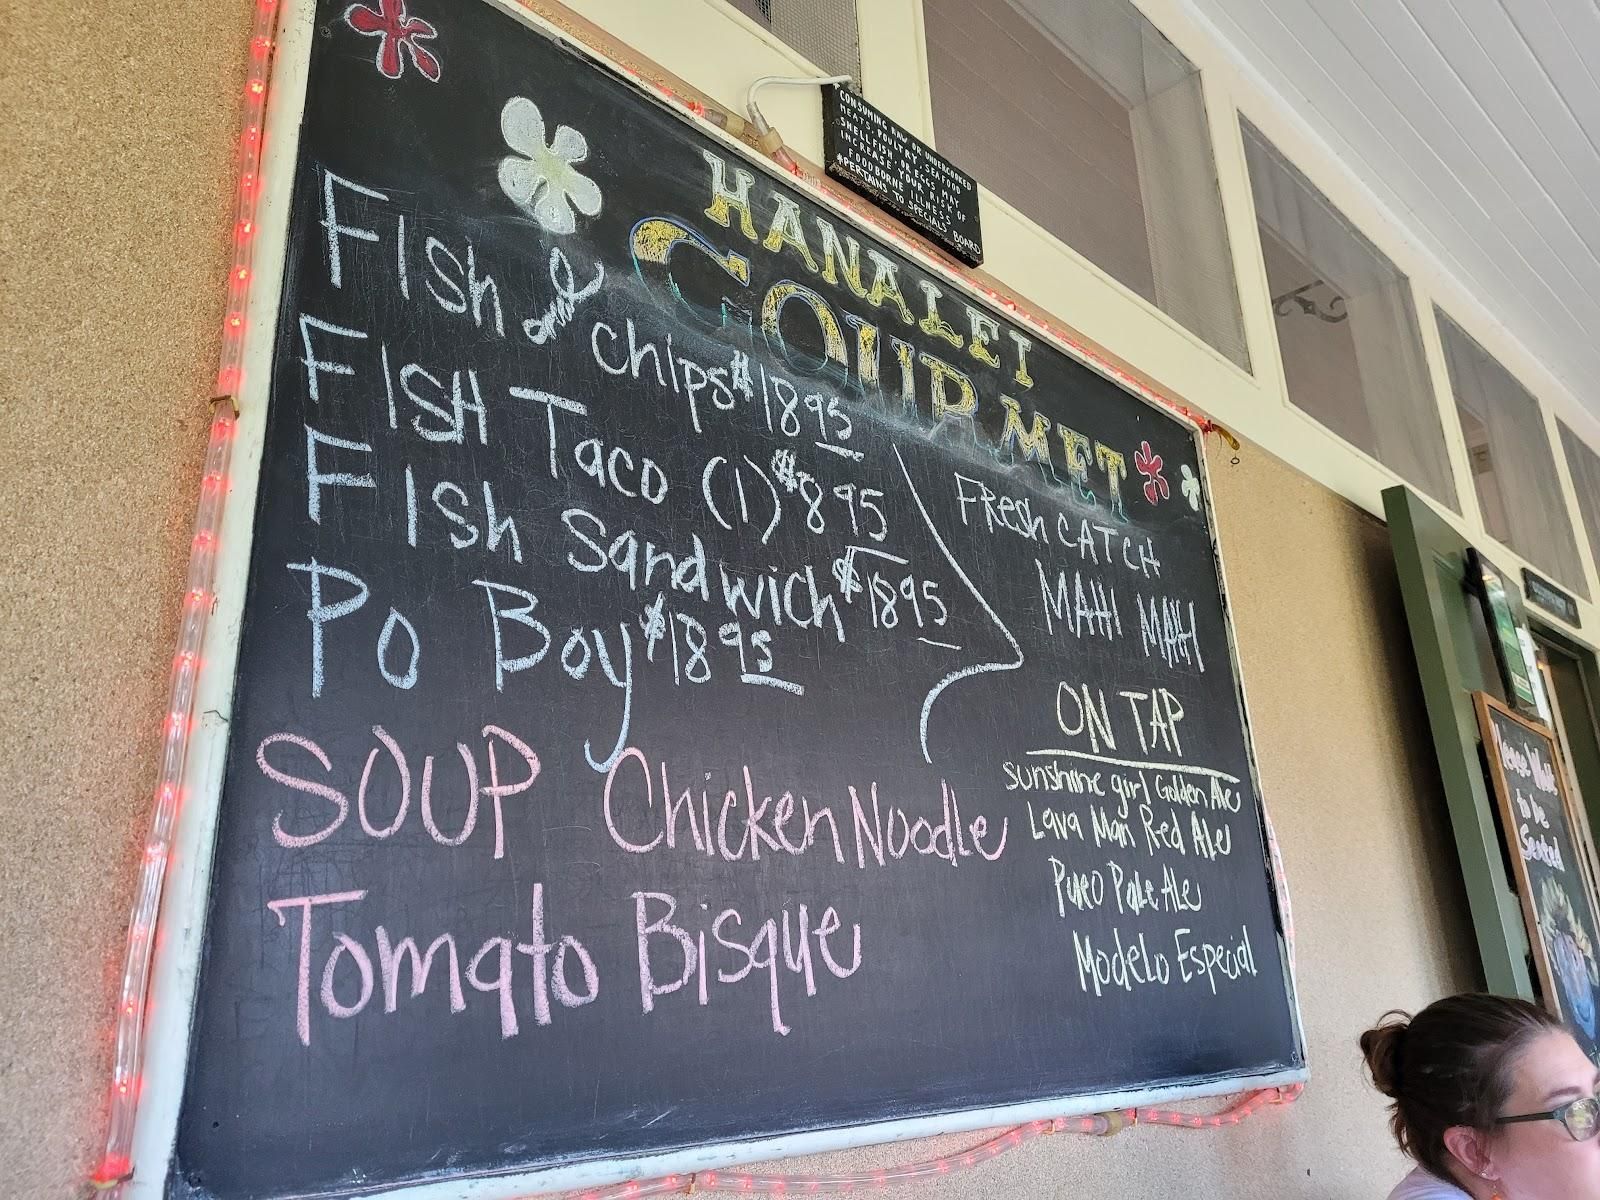 CONSUMING RAW OR UNDERCOOKED
MEATS, POULTRY, SEAFOOD
SHELLFISH, OR EGGS MAY
INCREASE YOUR RISK OF
FOODBORNE ILLNESS
*PERTAINS TO SPECIALS BOARD
HANALEI
GOURMET
FIsh and chips $18 95
FISH Taco (1) $8 95
FIsh Sandwich $18 95
Po Boy $18 95
FResh CATCH
MAHI MAHI
SOUP Chicken Noodle
Tomato Bisque
ON TAP
sunshine girl Golden Ale
Lava Man Red Ale
Pueo Pale Ale
Modelo Especial
to be
Seated